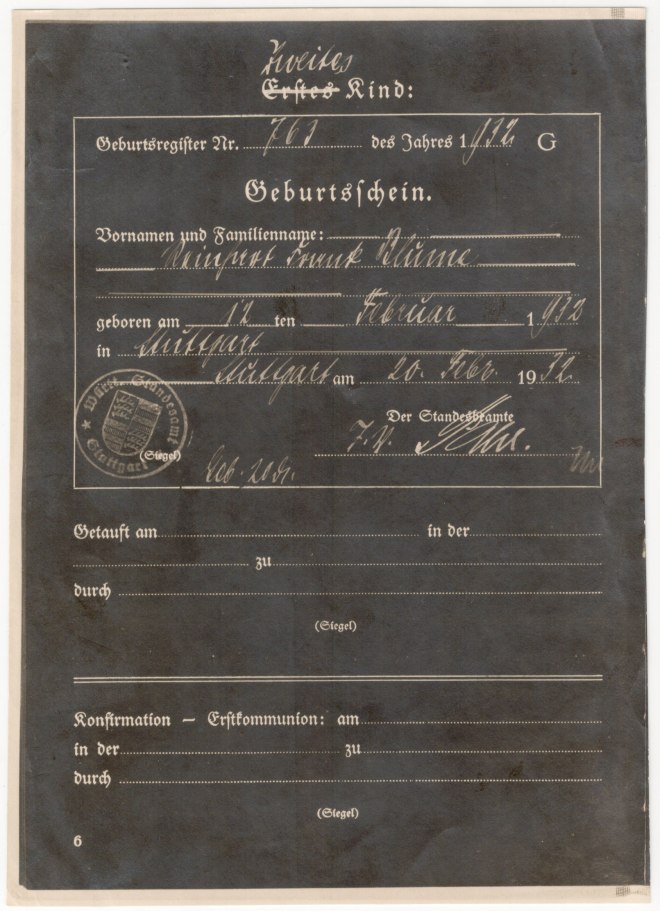 Zweites
Erstes Kind:
Geburtsregister Nr. 763 des Jahres 1932 G
Geburtsschein.
Vornamen und Familienname:
Frank Blume
geboren am 12 ten Februar 1932
in Stuttgart
Stuttgart am 20. Febr. 1932
Der Standesbeamte
I.V.
Württ. Standesamt Stuttgart
(Siegel)
Getauft am in der
zu
durch
(Siegel)
Konfirmation — Erstkommunion: am
in der zu
durch
(Siegel)
6